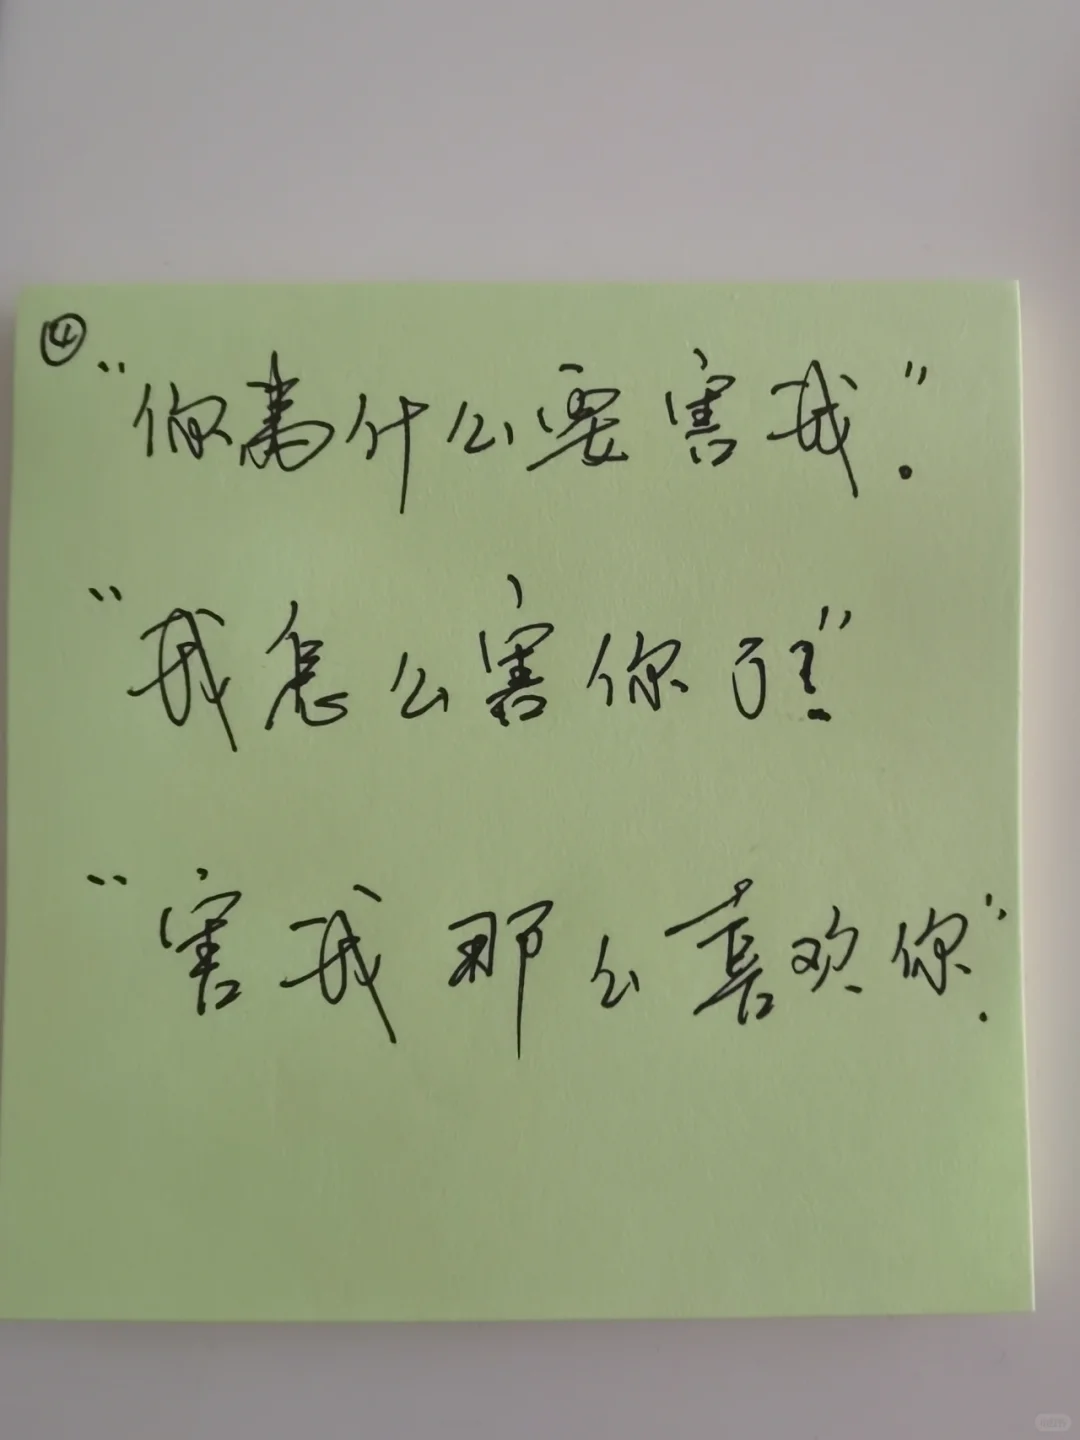 ④
“你為什么要害我.”
“我怎么害你了?”
“害我那么喜欢你.”